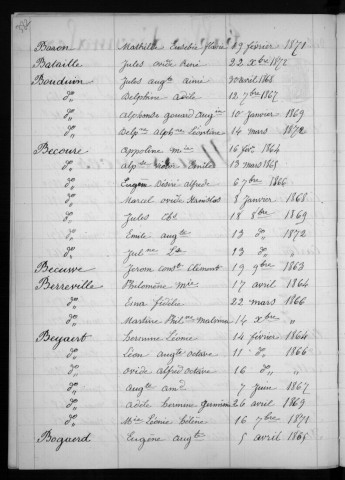 Baron Mathilde Eusébie 19 février 1871
Bataille Jules ovide René 22 Xbre 1872
Bouduin Jules augte aimé 30 avril 1868
do Delphine adèle 12 7bre 1867
do alphonse gérard augin 10 Janvier 1869
do Delphne alphne Léontine 14 mars 1872
Becourt appoline mie 16 fév. 1864
do 13 mars 1865
do Eugène Désiré alfrède 6 7bre 1866
do Marcel ovide Stanislas 8 Janvier 1868
do Jules Ch. 18 8bre 1869
do Emile augte 13 do 1872
do Julne 13 do
Becuwe Jerom const Clément 19 9bre 1863
Berreville Philomène mie 17 avril 1864
do 22 mars 1866
do Martine Philne 14 Xbre "
Beyaert Corinne Léonie 14 février 1864
do Léon augte octave 11 do 1866
do ovide alfred octave 16 do "
do augte amd 7 Juin 1867
do adèle 26 avril 1869
do Mie Léonie Célène 16 7bre 1871
Bogaerd Eugène augte 5 avril 1865